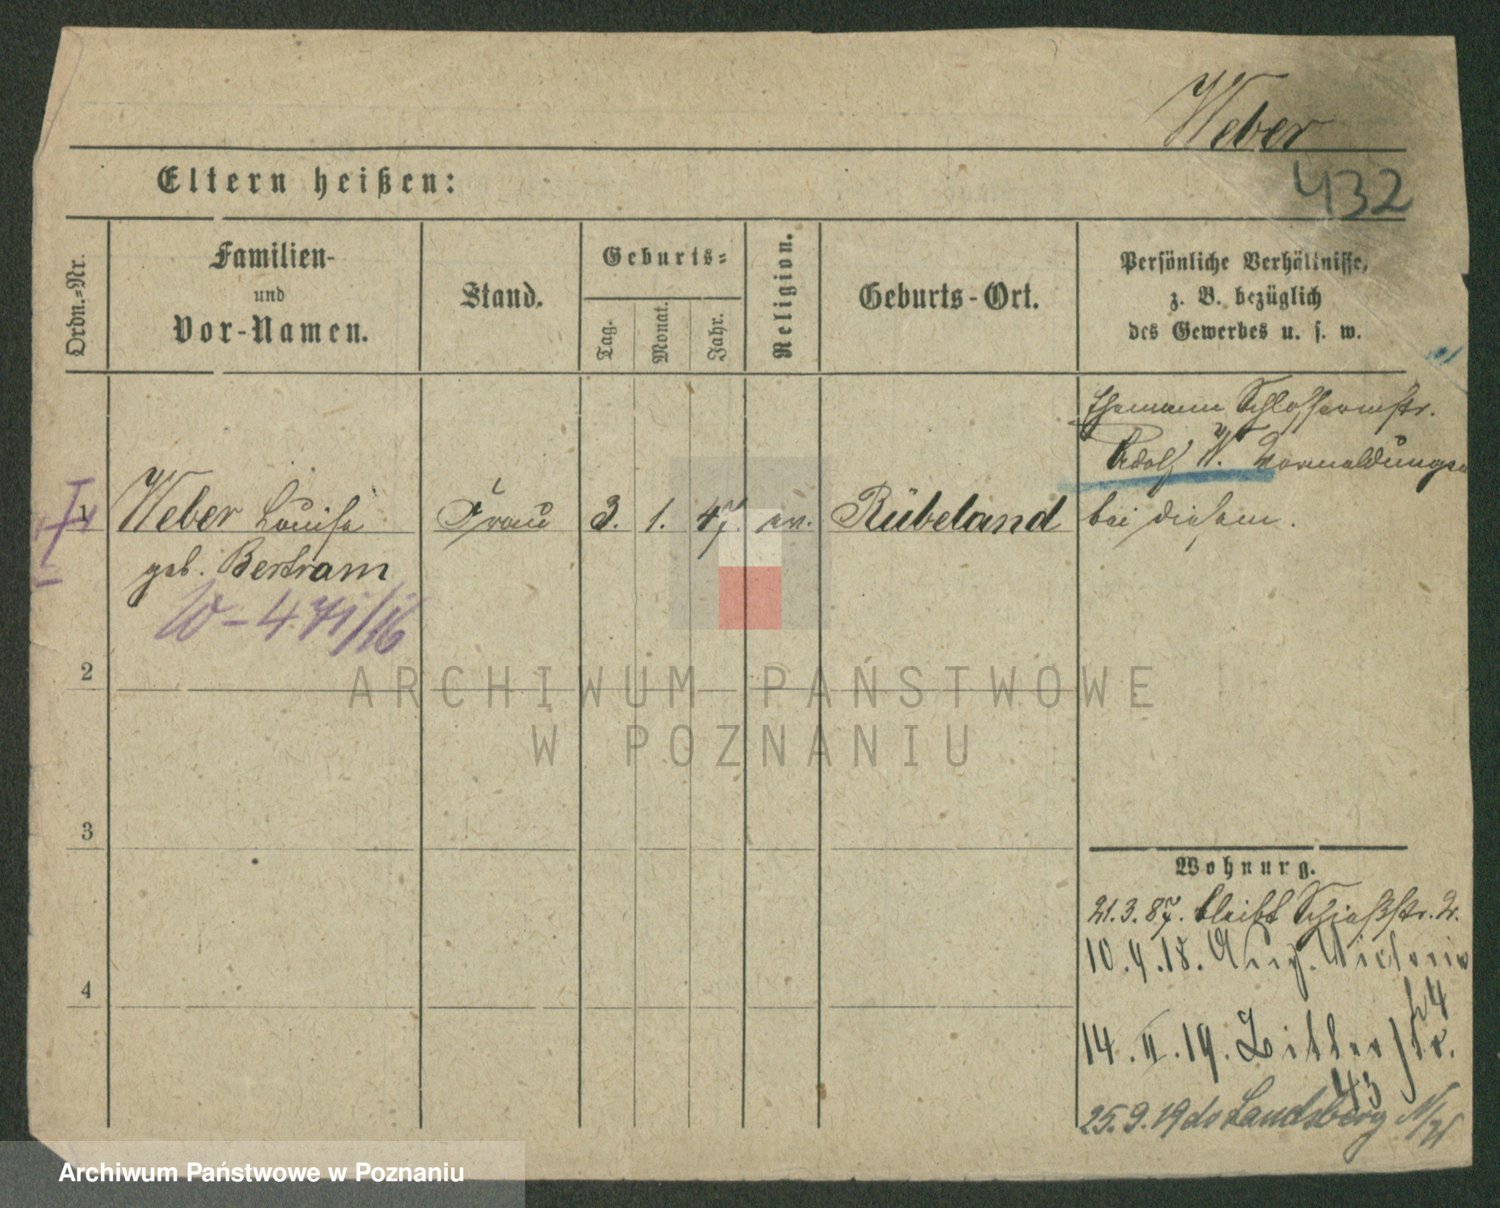 Weber
432
Eltern heißen:
Ordn.-Nr.
Familien-
und
Vor-Namen.
Stand.
Geburts-
Tag.
Monat.
Jahr.
Religion.
Geburts-Ort.
Persönliche Verhältnisse,
z. B. bezüglich
des Gewerbes u. s. w.
Ehemann Schlossermstr.
Adolf W. Vormeldungen
1 Weber Louise Frau 3. 1. 47. ev. Rübeland bei diesem.
geb. Bertram
W-471/16
2
ARCHIWUM PAŃSTWOWE
W POZNANIU
3
Wohnung.
21.3.87. bleibt Schießstr. 2.
10.4.18. Aug. Victoria
24
4
14.II.19. Str.
43
25.9.19 Landsberg
Archiwum Państwowe w Poznaniu